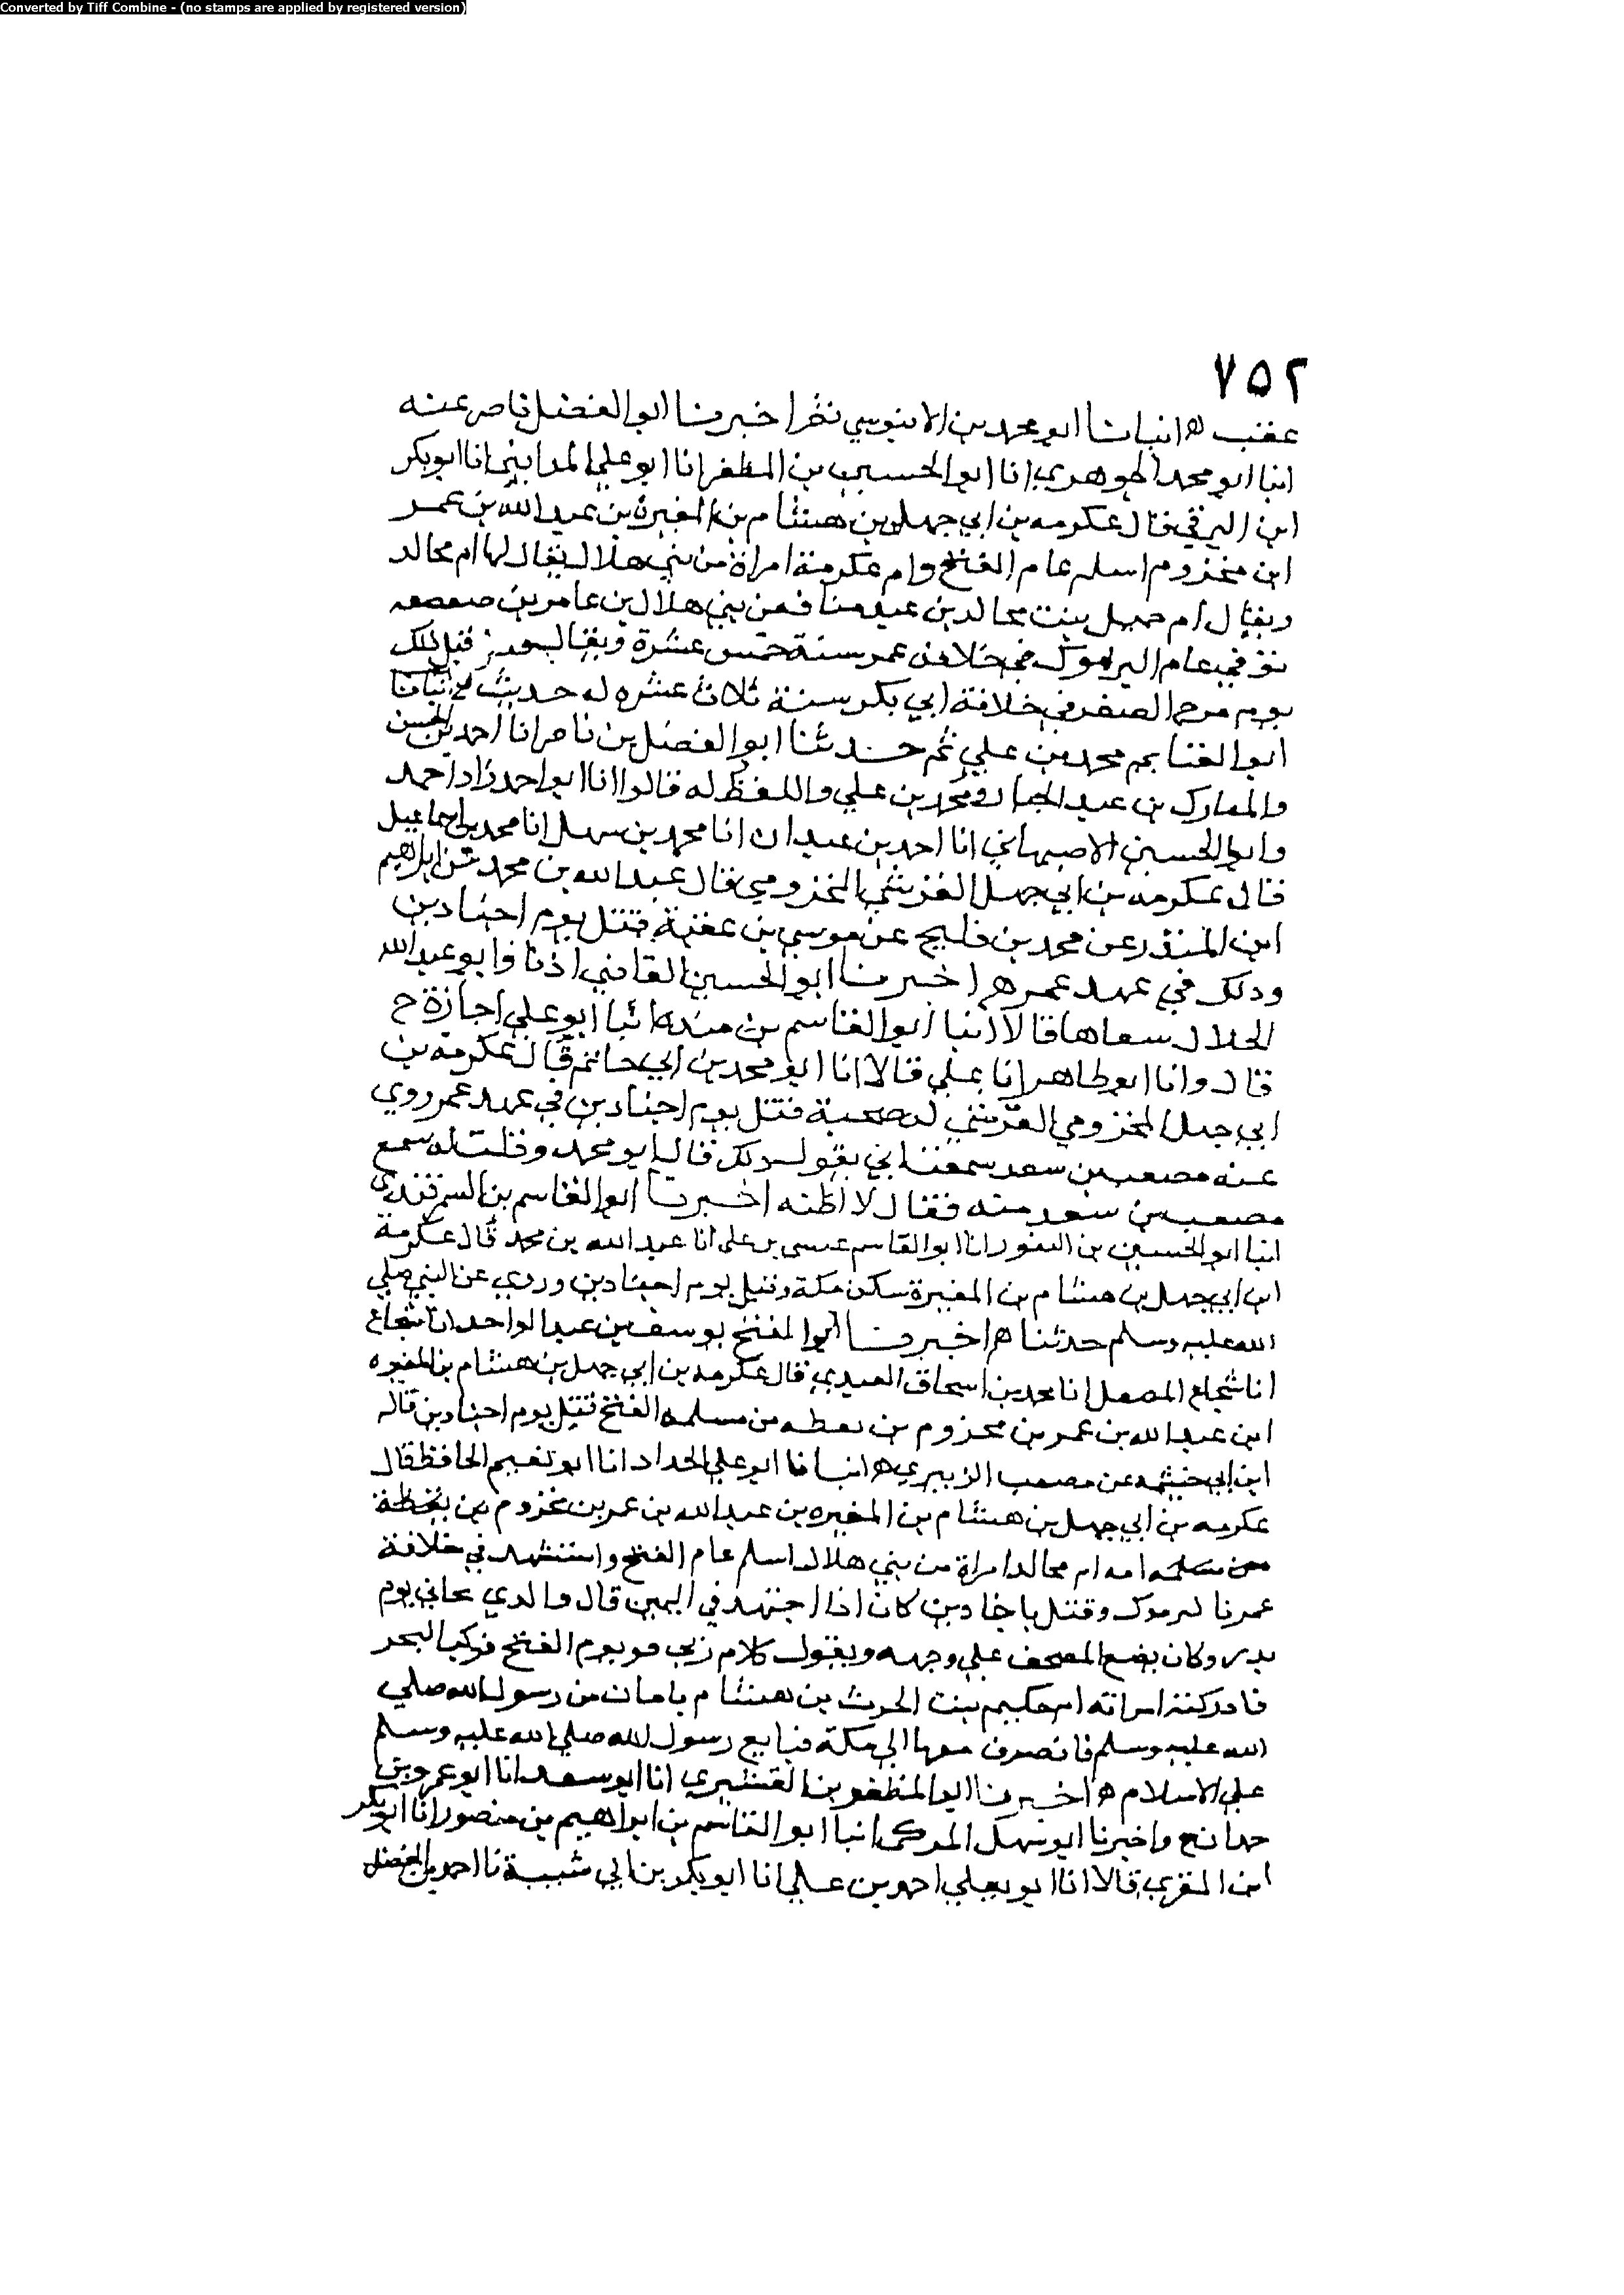 Converted by Tiff Combine - (no stamps are applied by registered version)
٧٥٢
عقب ه انبانا ابو محمد بن الابنوسي ثم اخبرنا ابو الفضل ناصر عنه
انبا ابو محمد الجوهري انا ابو الحسين بن المظفر انا ابو علي المدايني انا ابو بكر
ابن البرقي قال عكرمه بن ابي جهل بن هشام بن المغيرة بن عبد الله بن عمر
ابن مخزوم اسلم عام الفتح وام عكرمة امراة من بني هلال يقال لها ام مجالد
ويقال ام جميل بنت مجالد بن عبد مناف من بني هلال بن عامر بن صعصعه
توفي عام اليرموك في خلافة عمر سنة خمس عشرة ويقال قبل ذلك
يوم مرج الصفر في خلافة ابي بكر سنة ثلاث عشره له حديث انبانا
ابو الغنايم محمد بن علي ثم حدثنا ابو الفضل بن ناصر انا احمد بن الحسن
والمبارك بن عبد الجبار ومحمد بن علي واللفظ له قالوا انا ابو احمد زاد احمد
وابو الحسين الاصبهاني انا احمد بن عبدان انا محمد بن سهل انا محمد بن اسماعيل
قال عكرمه بن ابي جهل القرشي المخزومي قال عبد الله بن محمد عن ابراهيم
ابن المنذر عن محمد بن فليح عن موسي بن عقبة قتل يوم اجنادين
وذلك في عهد عمر ه اخبرنا ابو الحسين القاضي اذنا وابو عبد الله
الخلال سماها قالا انبا ابو القاسم بن منده انبا ابو علي اجازة ح
قال وانا ابو طاهر انا علي قالا انا ابو محمد بن ابي حاتم قال عكرمة بن
ابي جهل المخزومي القرشي له صحبة قتل يوم اجنادين في عهد عمر روي
عنه مصعب بن سعد سمعت ابي يقول ذلك قال ابو محمد وقلت له سمع
مصعب بن سعد منه فقال لا اظنه اخبرنا ابو القاسم بن السمرقندي
انبا ابو الحسين بن النقور انا ابو القاسم عيسى بن علي انا عبد الله بن محمد قال عكرمة
ابن ابي جهل بن هشام بن المغيرة سكن مكة وقتل يوم اجنادين وروي عن النبي صلي
الله عليه وسلم حدثنا ه اخبرنا ابو الفتح يوسف بن عبد الواحد انا شجاع
انا شجاع المصقل انا محمد بن اسحاق العبدي قال عكرمه بن ابي جهل بن هشام بن المغيره
ابن عبد الله بن عمر بن مخزوم بن يقظه من مسلمه الفتح قتل يوم اجنادين قاله
ابن ابي خيثمه عن مصعب الزبيري ه انبانا ابو علي الحداد انا ابو نعيم الحافظ قال
عكرمه بن ابي جهل بن هشام بن المغيره بن عبد الله بن عمر بن مخزوم بن يقظة
امه ام مجالد امراة من بني هلال اسلم عام الفتح واستشهد في خلافة
عمر وقتل باجنادين كان اذا اجتهد في اليمين قال والذي نجاني يوم
بدر وكان يضع المصحف علي وجهه ويقول كلام ربي فر يوم الفتح فركب البحر
فادركته امراته ام حكيم بنت الحرث بن هشام بامان من رسول الله صلي
الله عليه وسلم فانصرف معها الي مكة فبايع رسول الله صلي الله عليه وسلم
علي الاسلام ه اخبرنا ابو المظفر بن القشيري انا ابو سعد انا ابو عمرو بن
حمدان ح واخبرنا ابو سهل المزكى انبا ابو القاسم بن ابراهيم بن منصور انا ابو بكر
ابن المقري قالا انا ابو يعلي احمد بن علي انا ابو بكر بن ابي شيبة نا احمد بن المفضل